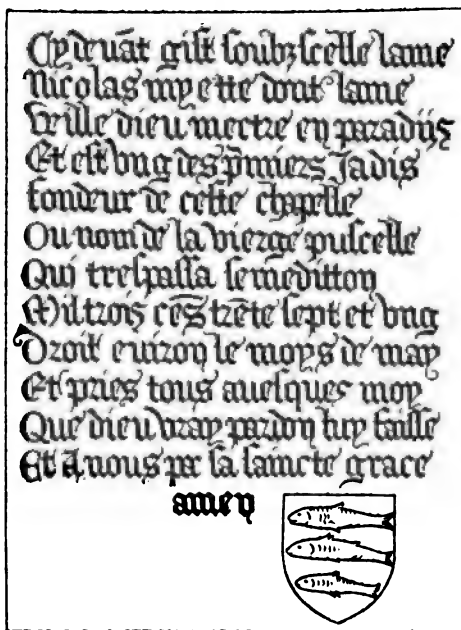 Cy devāt gist soubz scelle lame
Nicolas myette dont lame
Veille dieu mectre en paradijs
Et est vng des p̄miers Jadis
fondeur de ceste chapelle
Ou nom de la vierge puscelle
Qui trespassa se me dit lon
Mil trois cēs trēte sept et vng
Droit enuiron le moys de may
Et pries tous auesques moy
Que dieu vray pardon luy faisse
Et A nous par sa saincte grace
amen